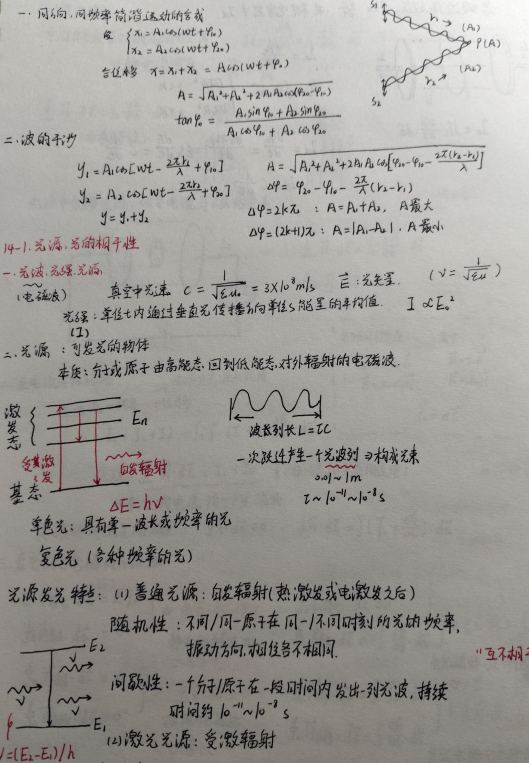 一、同方向、同频率简谐运动的合成
设 { x₁ = A₁cos(wt+φ₁₀)
x₂ = A₂cos(wt+φ₂₀)
合位移 x = x₁+x₂ = A cos(wt+φ₀)
A = √(A₁²+A₂²+2A₁A₂cos(φ₂₀-φ₁₀))
tanφ₀ = (A₁sinφ₁₀+A₂sinφ₂₀)/(A₁cosφ₁₀+A₂cosφ₂₀)
S₁ r₁ (A₁)
P(A)
S₂ r₂ (A₂)
二、波的干涉
y₁ = A₁cos[wt - 2πr₁/λ + φ₁₀]
y₂ = A₂cos[wt - 2πr₂/λ + φ₂₀]
y = y₁+y₂
A = √(A₁²+A₂²+2A₁A₂cos[φ₂₀-φ₁₀-2π(r₂-r₁)/λ])
Δφ = φ₂₀-φ₁₀-2π/λ(r₂-r₁)
Δφ=2kπ : A=A₁+A₂, A最大
Δφ=(2k+1)π : A=|A₁-A₂|, A最小
14-1. 光源、光的相干性
一、光波、光强、光源
(电磁波) 真空中光速 C = 1/√(εμ₀) = 3×10⁸m/s E⃗:光矢量. (v = 1/√(εμ))
光强:单位t内通过垂直光传播方向单位S能量的平均值. I∝E₀²
(I)
二、光源:可发光的物体
本质:分子或原子由高能态回到低能态,对外辐射的电磁波.
激发态 { En
受激激发
自发辐射
基态
ΔE=hν
波长列长L=τC
一次跃迁产生一个光波列⇒构成光束
0.01~1m
τ~10⁻¹¹~10⁻⁸s
单色光:具有单一波长或频率的光
复色光(各种频率的光)
光源发光特点:(1)普通光源:自发辐射(热激发或电激发之后)
随机性:不同/同一原子在同一/不同时刻所光的频率,
振动方向,相位各不相同. "互不相干
间歇性:一个分子/原子在一段时间内发出一列光波,持续
时间约10⁻¹¹~10⁻⁸s
(2)激光光源:受激辐射
E₂
ν
ν
ν
E₁
ν=(E₂-E₁)/h